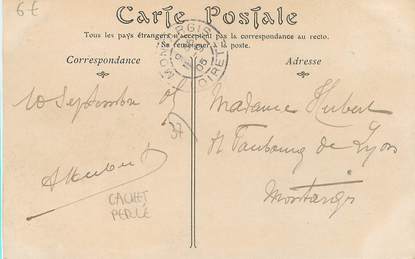 6 €
Carte Postale
Tous les pays étrangers n'acceptent pas la correspondance au recto.
Se renseigner à la poste.
Correspondance
Adresse
MONTARGIS
LOIRET
05
10 Septembre 05
37
Madame Hubert
Faubourg de Lyon
Montargis
A Hubert
CACHET
PERLÉ